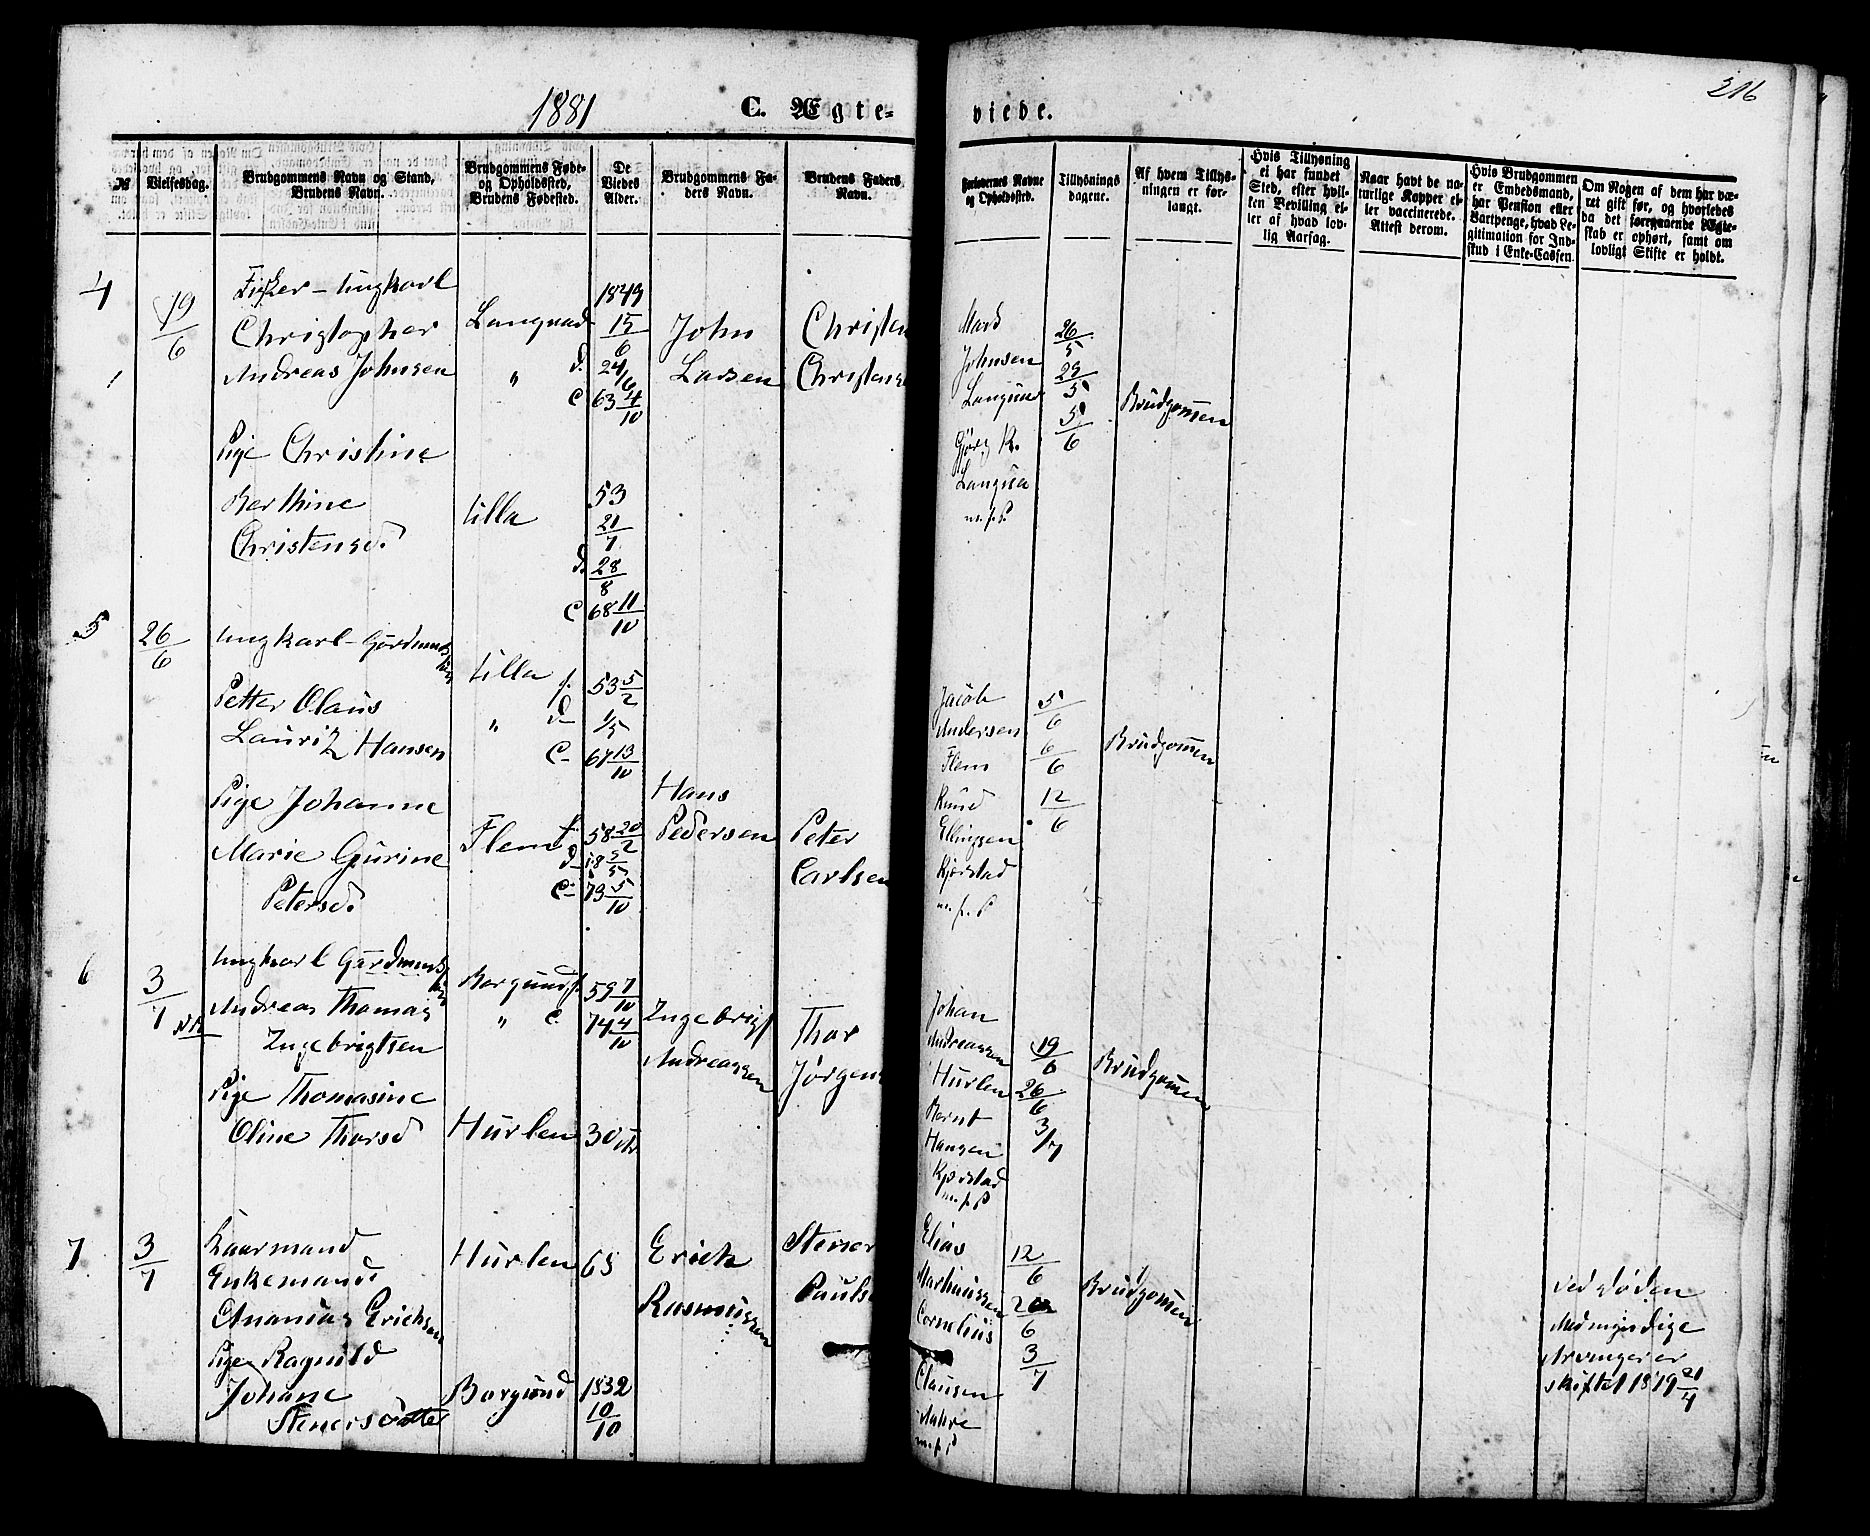 1881
C. Ægte-
viede.
216
№
Vielsesdag.
Brudgommens Navn og Stand,
Brudens Navn.
Brudgommens Føde-
og Opholdssted,
Brudens Fødested.
De
Viedes
Alder.
Brudgommens Fa-
ders Navn.
Brudens Faders
Navn.
Forlovernes Navne
og Opholdssted.
Tillysnings
dagene.
Af hvem Tillys-
ningen er for-
langt.
Hvis Tillysning
ei har fundet
Sted, efter hvil-
ken Bevilling el-
ler af hvad lov-
lig Aarsag.
Naar havt de na-
turlige Kopper el-
ler vaccinerede.
Attest derom.
Hvis Brudgommen
er Embedsmand,
har Pension eller
Vartpenge, hvad Le-
gitimation for Ind-
skud i Enke-Cassen
Om Nogen af dem har væ-
ret gift før, og hvorledes
da det foregaaende Ægte-
skab er ophørt, samt om
lovligt Skifte er holdt.
4
19/6
Fisker - ungkarl
Christopher
Andreas Johnsen
Pige Christine
Berthine
Christensd.
"
Ulla
1849
15/6
d. 24/6
C 63 4/10
53
21/7
d. 28/8
C 68 11/10
John
Larsen
Christen
Mads
Johnsen
Gjørg K.
m.f.P
26/5
29/5
5/6
Brudgommen
5
26/6
Ungkarl -
Petter Olaus
Lauritz Hansen
Pige Johanne
Marie Gurine
Petersd.
Ulla
"
Flem
f. 53 5/2
d 1/5
C- 67 13/10
f. 58 20/2
d 18 5/5
C- 73 5/10
Hans
Pedersen
Peter
Carlsen
Jacob
Andersen
Flem
Knud
Ellingsen
Kjærstad
m.f.P
5/6
6/6
12/6
Brudgommen
6
3/7
Ungkarl
Andreas Thomas
Ingebrigtsen
Pige Thomasine
Oline Thorsd
Borgund
"
Hurlen
f. 59 7/10
C 74 4/10
30
Ingebrigt
Andreassen
Thor
Jørgens
Johan
Andreassen
Hurlen
Bernt
Hansen
Kjærstad
m.f.P
19/6
26/6
3/7
Brudgommen
7
3/7
Kaarmand
Enkemand
Ananias Erichsen
Pige Ragnild
Johane
Stenersdatter
Hurlen
Borgund
65
1832
10/10
Erich
Rasmussen
Stener
Pauls
Elias
Marthinussen
Cornelius
Clausen
m.f.P
12/6
26/6
3/7
Brudgommen
ved Døden
Medmyndige
Arvinger er
skiftet 1879 21/4